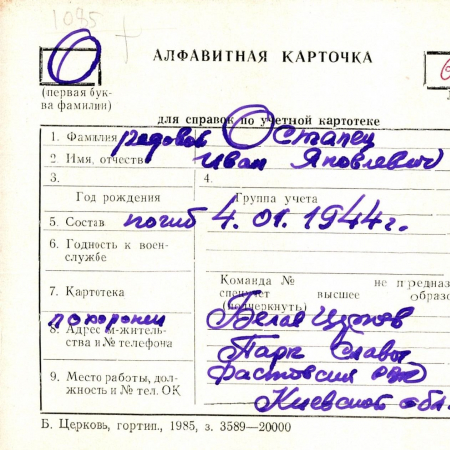 1085
О
АЛФАВИТНАЯ КАРТОЧКА
(первая бук-
ва фамилии)
для справок по учетной картотеке
1. Фамилия рядовой Остапец
2. Имя, отчество Иван Яковлевич
3.
4.
Год рождения
Группа учета
5. Состав погиб 4.01.1944г.
6. Годность к воен-
службе
Команда № не предназ
7. Картотека
спецучет высшее образо
(подчеркнуть)
похоронен Белая Церковь
8. Адрес м-житель-
ства и № телефона
Парк Славы
Фастовский
9. Место работы, дол-
жность и № тел. ОК
Киевской обл.
Б. Церковь, гортип., 1985, з. 3589—20000